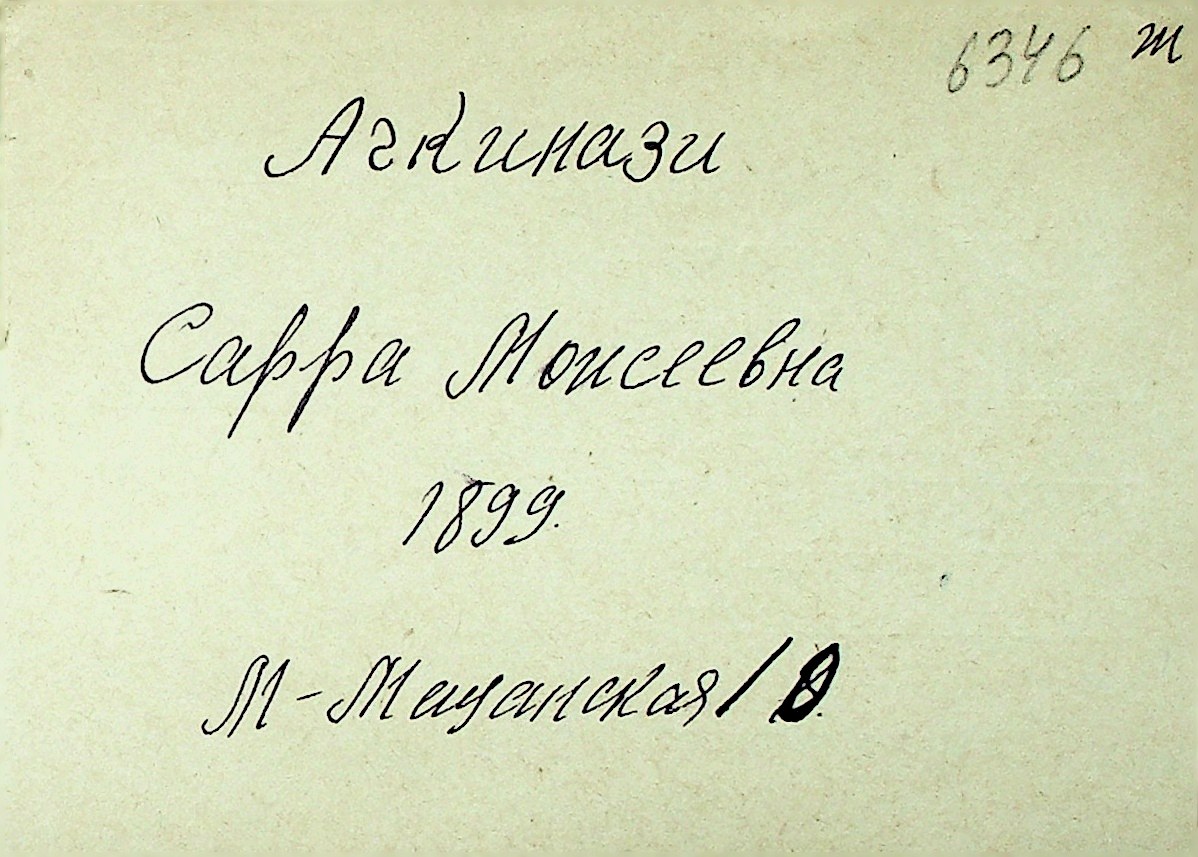 6346 т
Ачкинази
Сарра Моисеевна
1899.
М-Мещанская